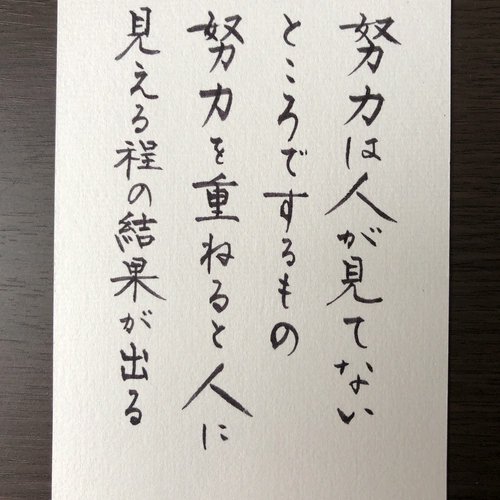 努力は人が見てない
ところでするもの
努力を重ねると人に
見える程の結果が出る